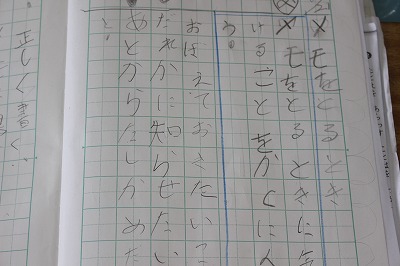 メモをとるとき
メモをとるときに気
けることをかくにん
う。
おぼえておきたいこ
だれかに知らせたい
あとからたしかめた
と、
正しく書く